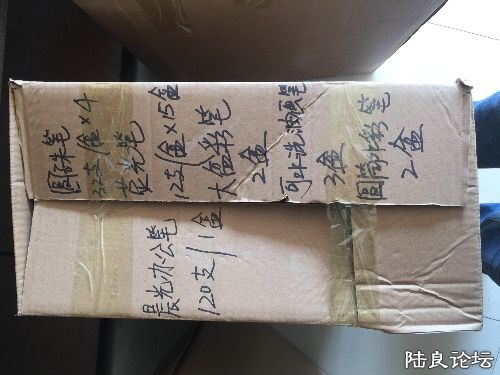 圆珠笔
32支/盒×4
荧光笔
12支/盒×15盒
大盒彩笔
2盒
可水洗油画笔
3盒
圆筒水彩笔
2盒
晨光办公笔
120支/1盒
陆良论坛